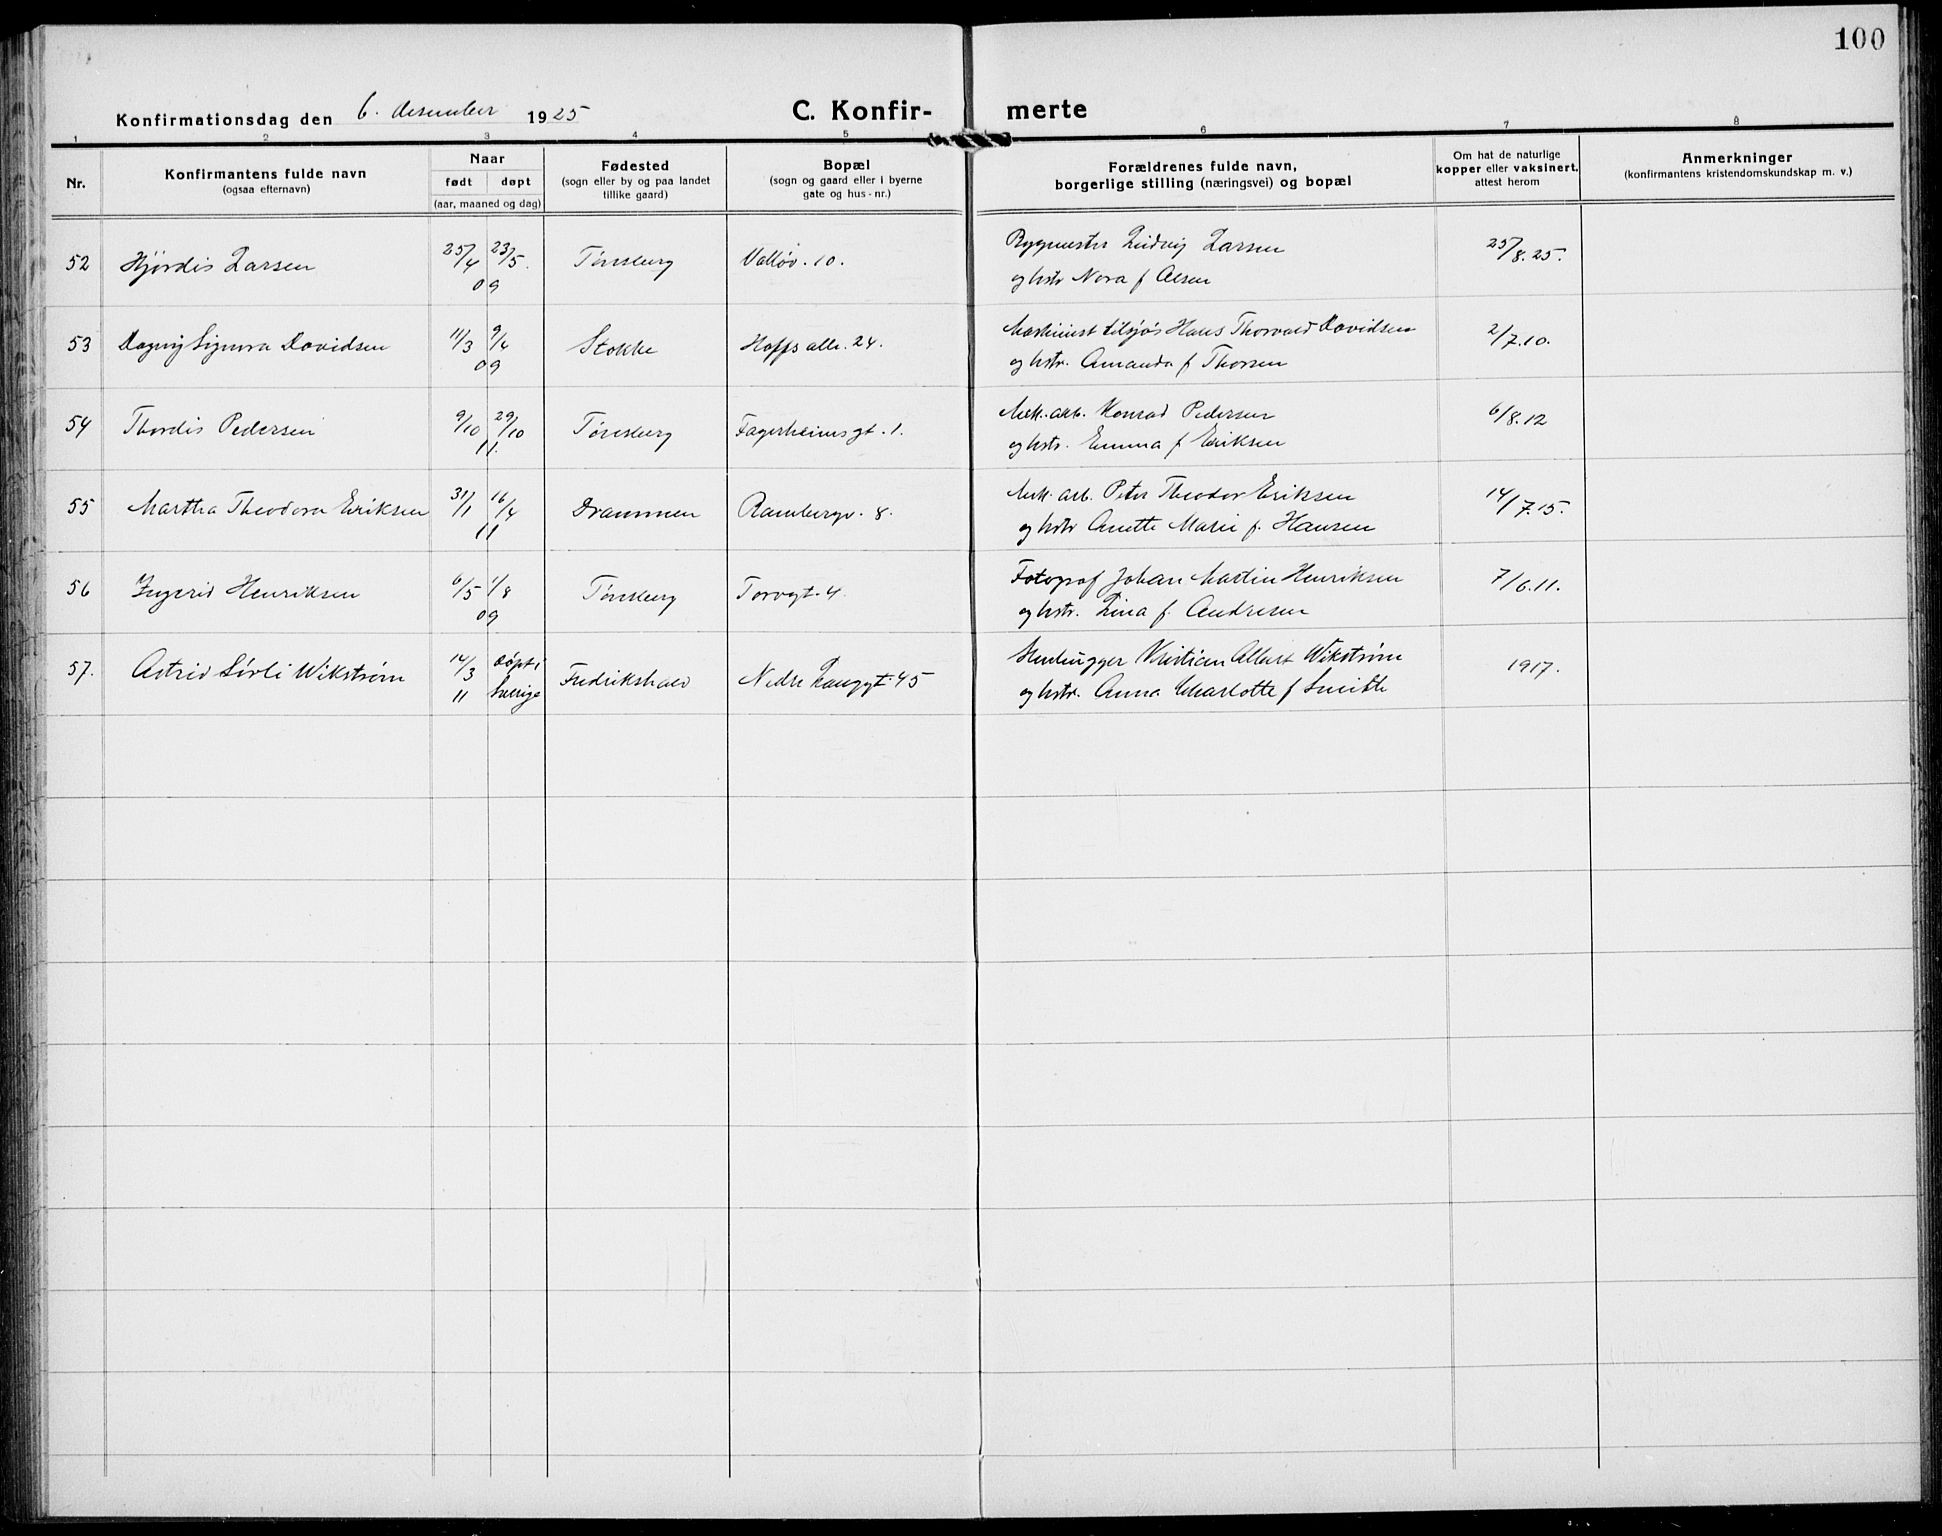 100
Konfirmationsdag den 6. desember 1925 C. Konfir- merte
1 2 3 4 5 6 7 8
Nr. Konfirmantens fulde navn (ogsaa efternavn) Naar født døpt (aar, maaned og dag) Fødested (sogn eller by og paa landet tillike gaard) Bopæl (sogn og gaard eller i byerne gate og hus-nr.) Forældrenes fulde navn, borgerlige stilling (næringsvei) og bopæl Om hat de naturlige kopper eller vaksinert, attest herom Anmerkninger (konfirmantens kristendomskundskap m. v.)
52 Hjørdis Larsen 25/4 23/5. 09 Tønsberg Valløv. 10. Bygmester Ludvig Larsen 25/8.25.
og hstr Nora f. Olsen
53 Dagny Signora Davidsen 11/3 9/4 09 Stokke Hoffs alle. 24. Maskinist tilsjøs Hans Thorvald Davidsen 2/7.10.
og hstr. Amanda f Thorsen
54 Thordis Pedersen 9/10 29/10 11. Tønsberg Fagerheims gt. 1. Mek. arb. Konrad Pedersen 6/8.12
og hstr. Emma f Eriksen
55 Martha Theodora Eriksen 31/1 16/4 11 Drammen Rambergv. 8. Mek. arb. Peter Theodor Eriksen 14/7.15.
og hstr Anette Marie f. Hansen
56 Ingerid Henriksen 6/5 1/8 09 Tønsberg Torvgt. 4. Fotograf Johan Martin Henriksen 7/6.11.
og hstr. Lina f. Andresen
57. Astrid Sørli Wikstrøm 14/3 11 døpt i Sverige Fredrikshald Nedre Langgt. 45 Stenhugger Kristian Albert Wikstrøm 1917.
og hstr. Anna Charlotte f Smith